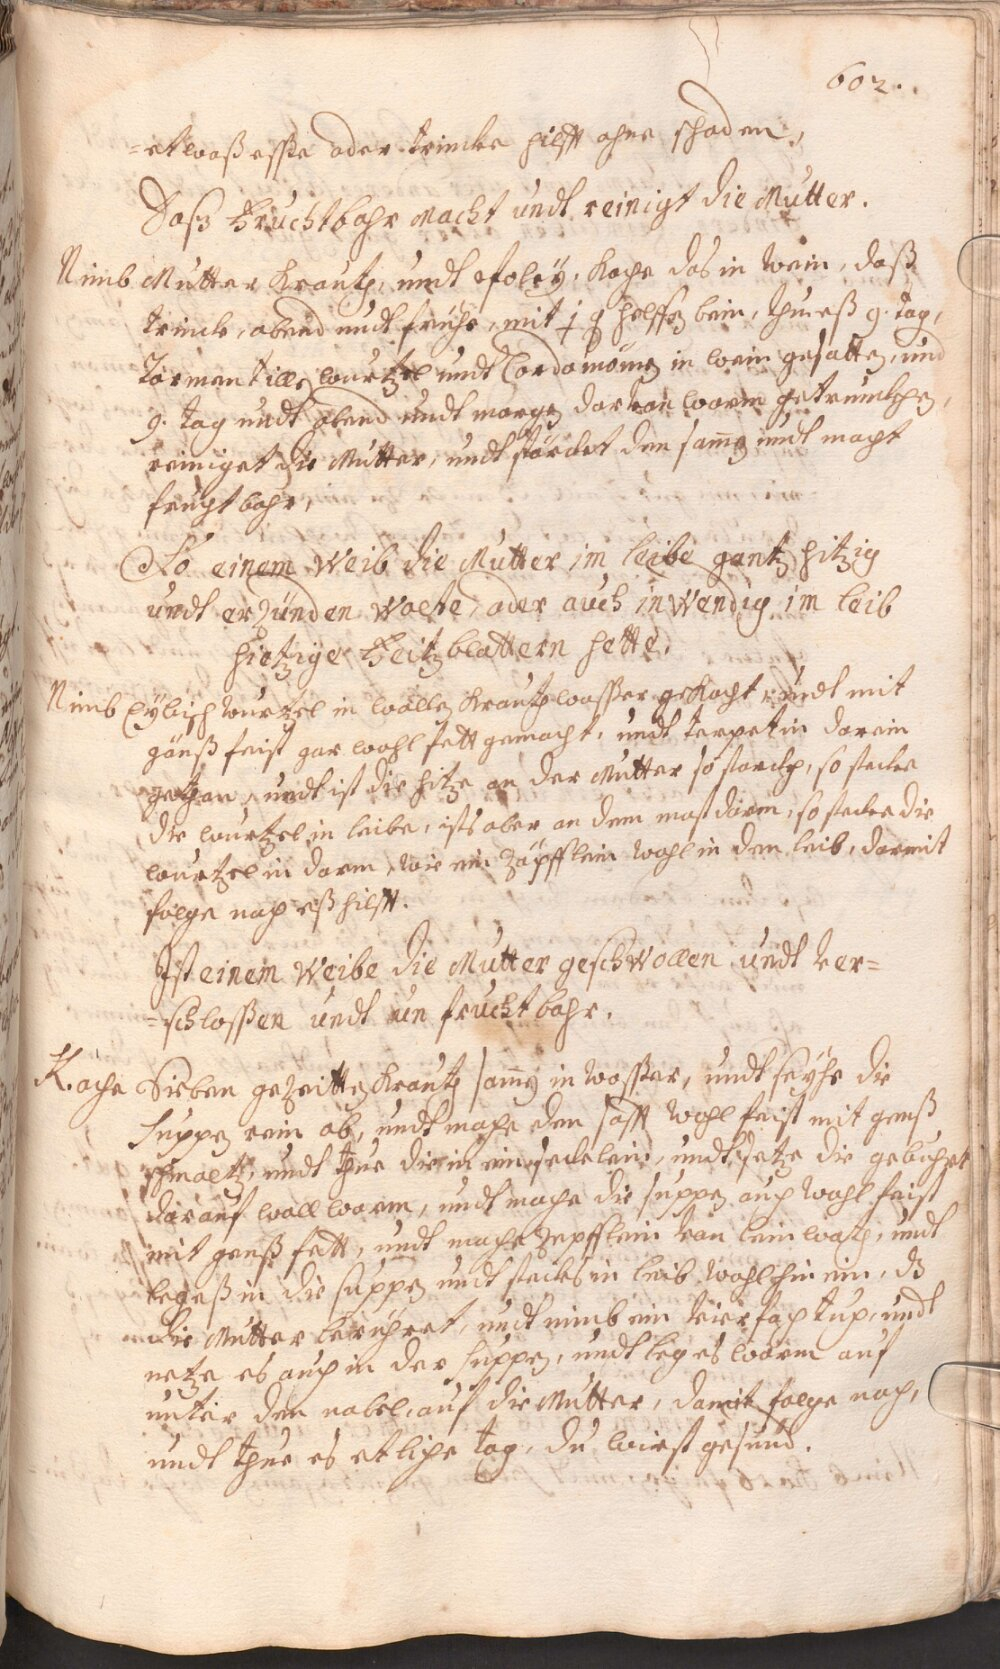 602.
=etwaß esse oder trincke hilfft ohne schaden,
Daß Fruchtbahr Macht undt reinigt die Mutter.
Nimb Mutter Krautz, undt Poley, Koche das in Wein, daß
trinck, abend undt frühe, mit helffen bein, thue eß 9. tag,
Tormentillen wurtzel undt Cardamomen in wein gesotten, und
9. tag undt abend undt morgen darvon warm getruncken,
reiniget die Mutter, undt stärcket den samen undt macht
fruchtbahr,
So einem Weib die Mutter im leibe gantz hitzig
undt erzünden Wolte, oder auch inwendig im leib
hietzige Heitzblattern hette,
Nimb Eybisch Wurtzel in wollen Krautz wasser gekocht, undt mit
gänß feist gar wohl fett gemacht, undt terpetin darein
gethan, undt ist die hitze an der Mutter so starck, so stecke
die wurtzel in leibe, ists aber an dem mastdarm, so stecke die
wurtzel in darm, wie ein Zäpfflein wohl in den leib, darmit
folge nach eß hilfft.
Ist einem Weibe die Mutter geschwollen undt ver=
=schloßen undt un fruchtbahr.
Koche Sieben gezeitten Krautz samen in waßer, undt seyhe die
suppen rein ab, undt mache den safft wohl feist mit genß
schmaltz, undt thue die in ein seckelein, undt setze die gebuhrt
darauf wollwarm, undt mache die suppen auch wohl feist
mit genß fett, undt mache zepfflein von leinwath, undt
lege eß in die suppen undt stecks in leib wohl hinein, dz
die Mutter berühret, undt nimb ein vierfach tuch, undt
netze es auch in der suppen, undt leg es warm auf
unter den nabel, auf die Mutter, damit folge nach,
undt thue es etliche tag, du wirst gesund.